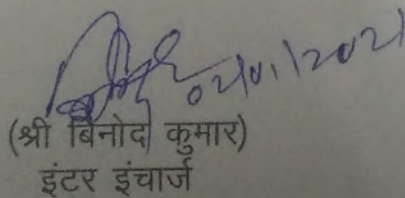 02/01/2021
(श्री बिनोद कुमार)
इंटर इंचार्ज